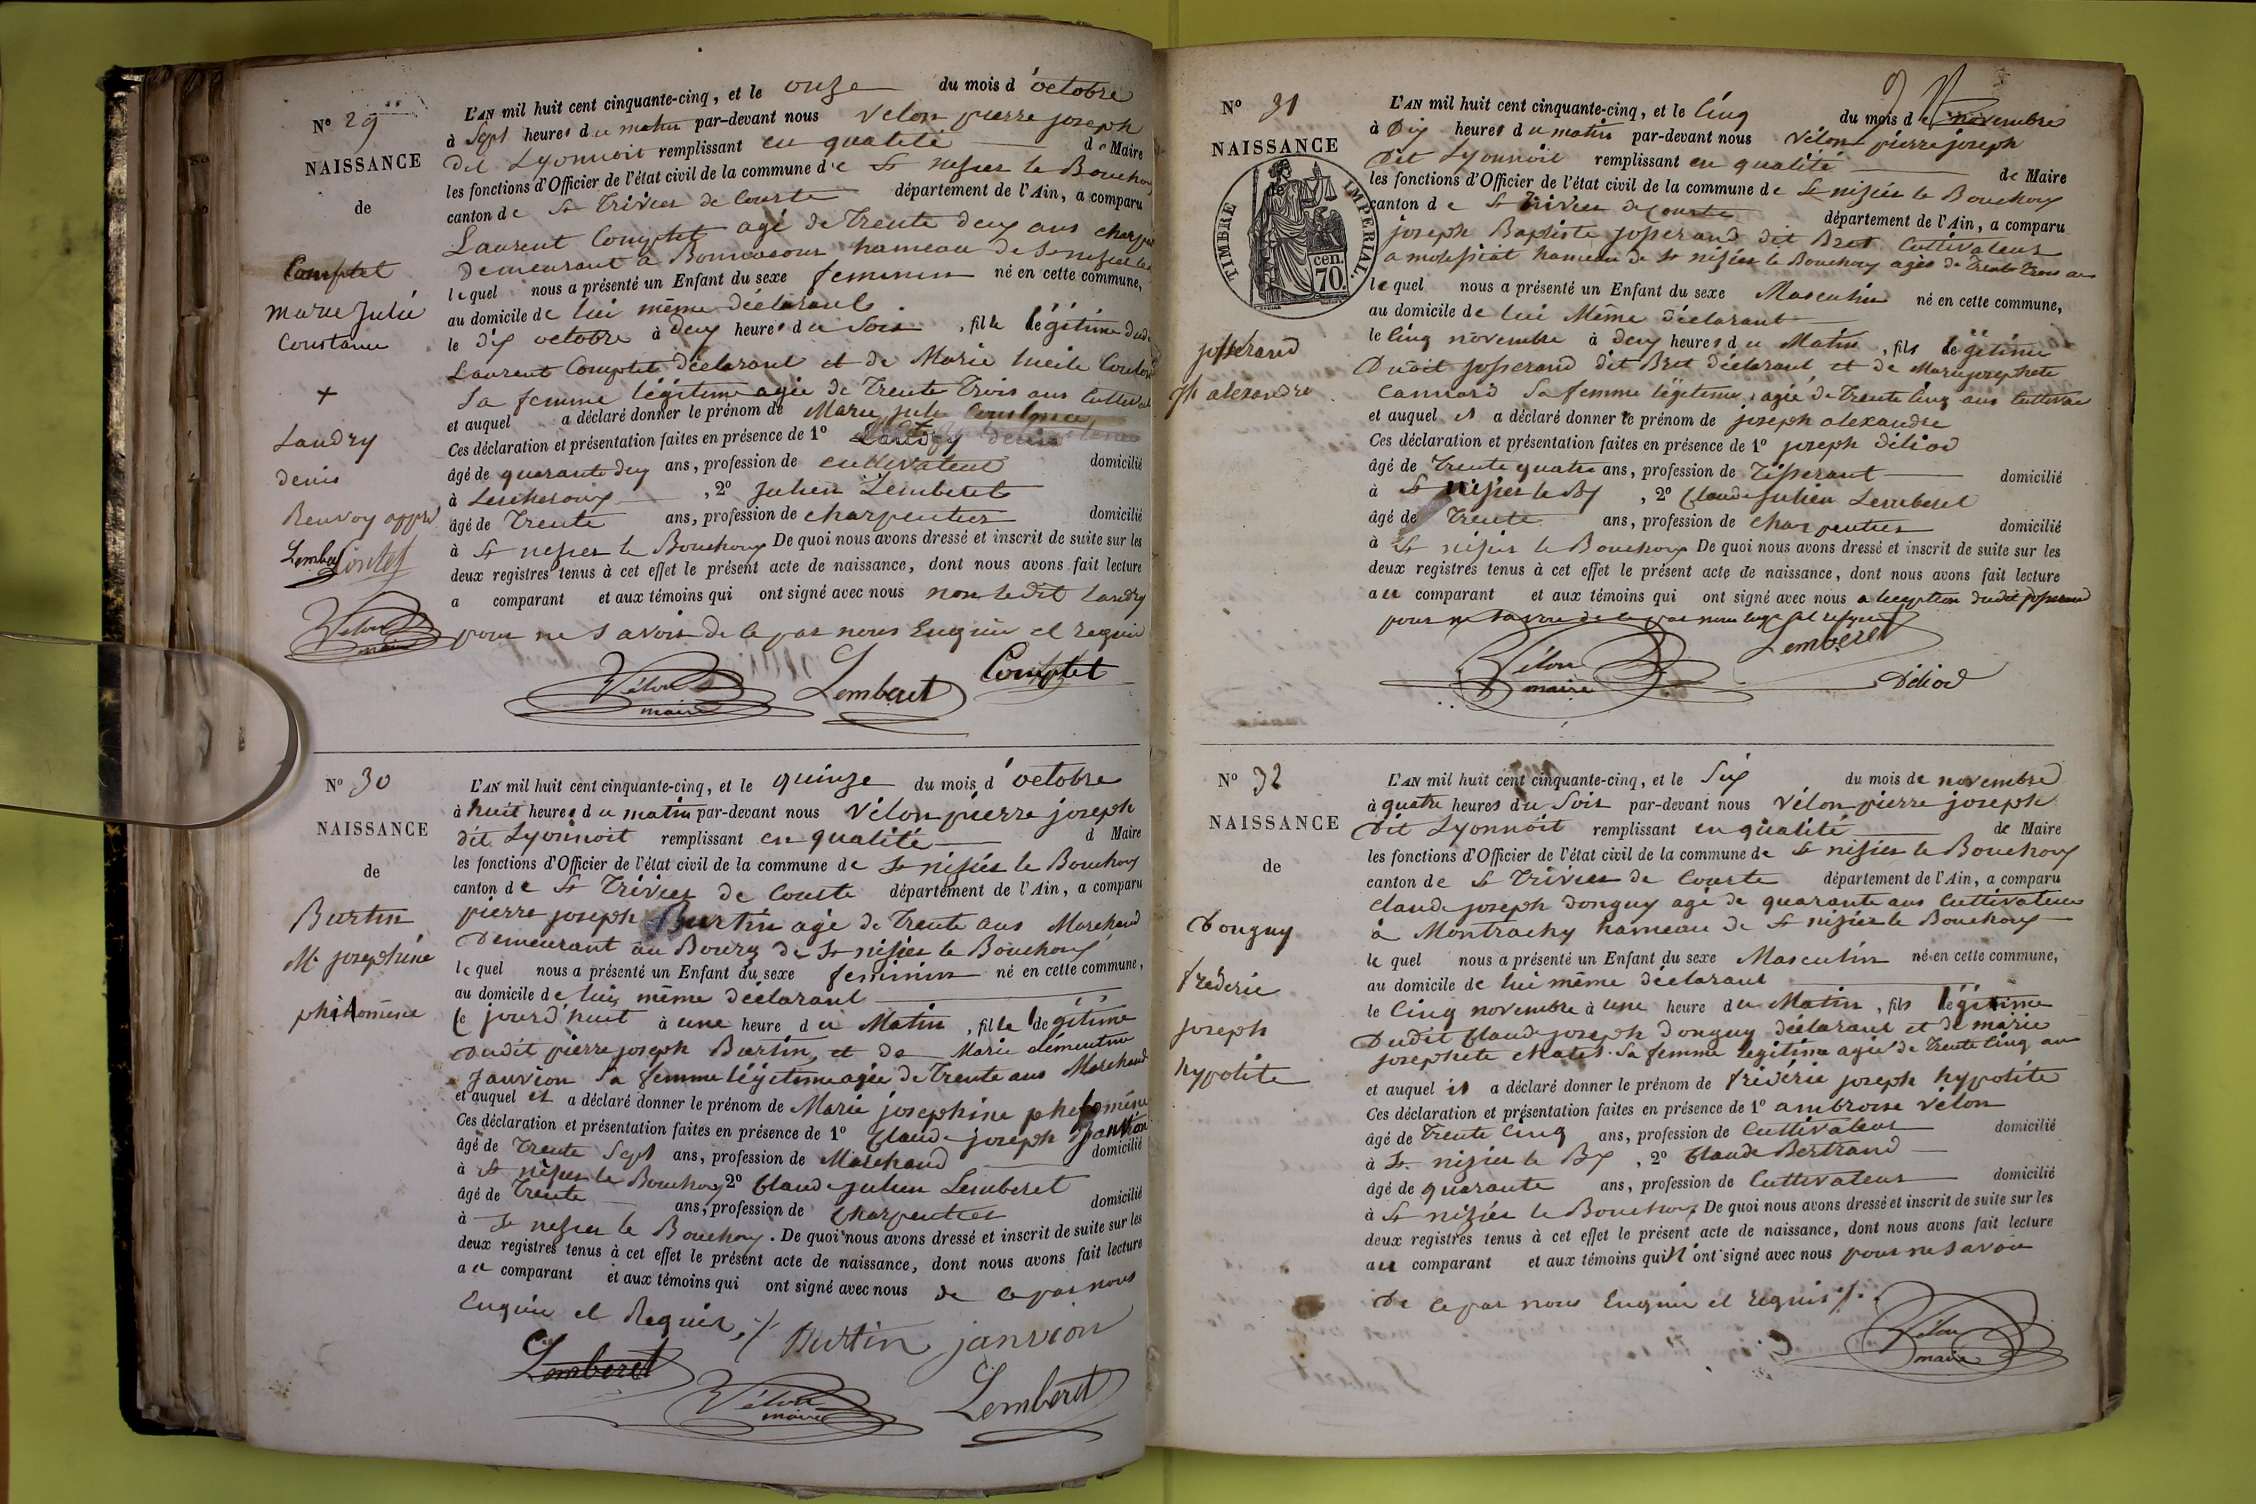 N° 29
NAISSANCE
de
Comptet
Marie Julie
Constance
+
Landry
denis
Renvoy appr
Lemberet Comptet
Vélon
maire
L'AN mil huit cent cinquante-cinq, et le onze du mois d'octobre
à Sept heures du matin par-devant nous Velon pierre joseph
dit Lyonnoit remplissant en qualité de Maire
les fonctions d'Officier de l'état civil de la commune de St nisier le Bouchoux
canton de St Trivier de Courte département de l'Ain, a comparu
Laurent Comptet agé de Trente deux ans charpe
demeurant à Bonnacour hameau de St nisier le
lequel nous a présenté un Enfant du sexe feminin né en cette commune,
au domicile de lui même déclarant
le dix octobre à deux heures du Soir, fille légitime dud
Laurent Comptet déclarant et de Marie lucile
Sa femme légitime agée de Trente Trois ans Cultiva
et auquel a déclaré donner le prénom de Marie julie Constance
Ces déclaration et présentation faites en présence de 1° Landry denis
âgé de quarante deux ans, profession de cultivateur domicilié
à Lescheroux, 2° Julien Lemberet
âgé de Trente ans, profession de charpentier domicilié
à St nisier le Bouchoux De quoi nous avons dressé et inscrit de suite sur les
deux registres tenus à cet effet le présent acte de naissance, dont nous avons fait lecture
a comparant et aux témoins qui ont signé avec nous non ledit Landry
pour ne Savoir de ce par nous Enquin et requin
Vélon
maire
Lemberet
Comptet
N° 30
NAISSANCE
de
Burtin
Me josephine
philomène
L'AN mil huit cent cinquante-cinq, et le quinze du mois d'octobre
à huit heures du matin par-devant nous Vélon pierre joseph
dit Lyonnoit remplissant en qualité d Maire
les fonctions d'Officier de l'état civil de la commune de St nisier le Bouchoux
canton de St Trivier de Courte département de l'Ain, a comparu
pierre joseph Burtin agé de Trente ans Marchand
Demeurant au Bourg de St nisier le Bouchoux
lequel nous a présenté un Enfant du sexe feminin né en cette commune,
au domicile de lui même déclarant
le jourd'huit à une heure du Matin, fille légitime
Dudit pierre joseph Burtin, et de Marie clémentine
Janvion Sa femme légitime agée de Trente ans Marchand
et auquel il a déclaré donner le prénom de Marie josephine philomène
Ces déclaration et présentation faites en présence de 1° Claude joseph janvion
âgé de Trente Sept ans, profession de Marchand domicilié
à St nisier le Bouchoux 2° Claude julien Lemberet
âgé de Trente ans, profession de Charpentier domicilié
à St nisier le Bouchoux. De quoi nous avons dressé et inscrit de suite sur les
deux registres tenus à cet effet le présent acte de naissance, dont nous avons fait lecture
au comparant et aux témoins qui ont signé avec nous de ce par nous
Enquin et Requin ./.
Burtin janvion
Lemberet
Vélon
maire
Lemberet
N° 31
NAISSANCE
TIMBRE IMPERIAL.
cen.
70
josserand
jh alexandre
L'AN mil huit cent cinquante-cinq, et le Cinq du mois de novembre
à Dix heures du matin par-devant nous Vélon pierre joseph
Dit Lyonnoit remplissant en qualité de Maire
les fonctions d'Officier de l'état civil de la commune de St nisier le Bouchoux
canton de St Trivier de Courte département de l'Ain, a comparu
joseph Baptiste josserand dit Bret Cultivateur
a molissiat hameau de St nisier le Bouchoux agés de Trente Trois ans
lequel nous a présenté un Enfant du sexe Masculin né en cette commune,
au domicile de lui Même déclarant
le Cinq novembre à Deux heures du Matin, fils légitime
Dudit josserand dit Bret déclarant et de Marie josephete
Cannard Sa femme légitime, agée de Trente Cinq ans Cultivat
et auquel il a déclaré donner le prénom de joseph alexandre
Ces déclaration et présentation faites en présence de 1° joseph déliod
âgé de Trente quatre ans, profession de Tisserant domicilié
à St nisier le Bx, 2° Claude julien Lemberet
âgé de Trente ans, profession de charpentier domicilié
à St nisier le Bouchoux De quoi nous avons dressé et inscrit de suite sur les
deux registres tenus à cet effet le présent acte de naissance, dont nous avons fait lecture
au comparant et aux témoins qui ont signé avec nous a lexception dudit josserand
pour ne Savoir de ce par nous
Lemberet
Vélon
maire
Déliod
N° 32
NAISSANCE
de
Donguy
fréderic
joseph
hypolite
L'AN mil huit cent cinquante-cinq, et le Six du mois de novembre
à quatre heures du Soir par-devant nous Vélon pierre joseph
Dit Lyonnoit remplissant en qualité de Maire
les fonctions d'Officier de l'état civil de la commune de St nisier le Bouchoux
canton de St Trivier de Courte département de l'Ain, a comparu
Claude joseph donguy agé de quarante ans Cultivateur
à Montrachy hameau de St nisier le Bouchoux
lequel nous a présenté un Enfant du sexe Masculin né en cette commune,
au domicile de lui même déclarant
le Cinq novembre à une heure du Matin, fils légitime
Dudit Claude joseph donguy déclarant et de marie
josephete chatet Sa femme légitime agée de Trente Cinq ans
et auquel il a déclaré donner le prénom de fréderic joseph hypolite
Ces déclaration et présentation faites en présence de 1° ambroise Velon
âgé de Trente Cinq ans, profession de Cultivateur domicilié
à St nizier le Bx, 2° Claude Bertrand
âgé de quarante ans, profession de Cultivateur domicilié
à St nizier le Bouchoux De quoi nous avons dressé et inscrit de suite sur les
deux registres tenus à cet effet le présent acte de naissance, dont nous avons fait lecture
au comparant et aux témoins qui n'ont signé avec nous pour ne Savoir
De ce par nous Enquin et requis ./.
Vélon
maire